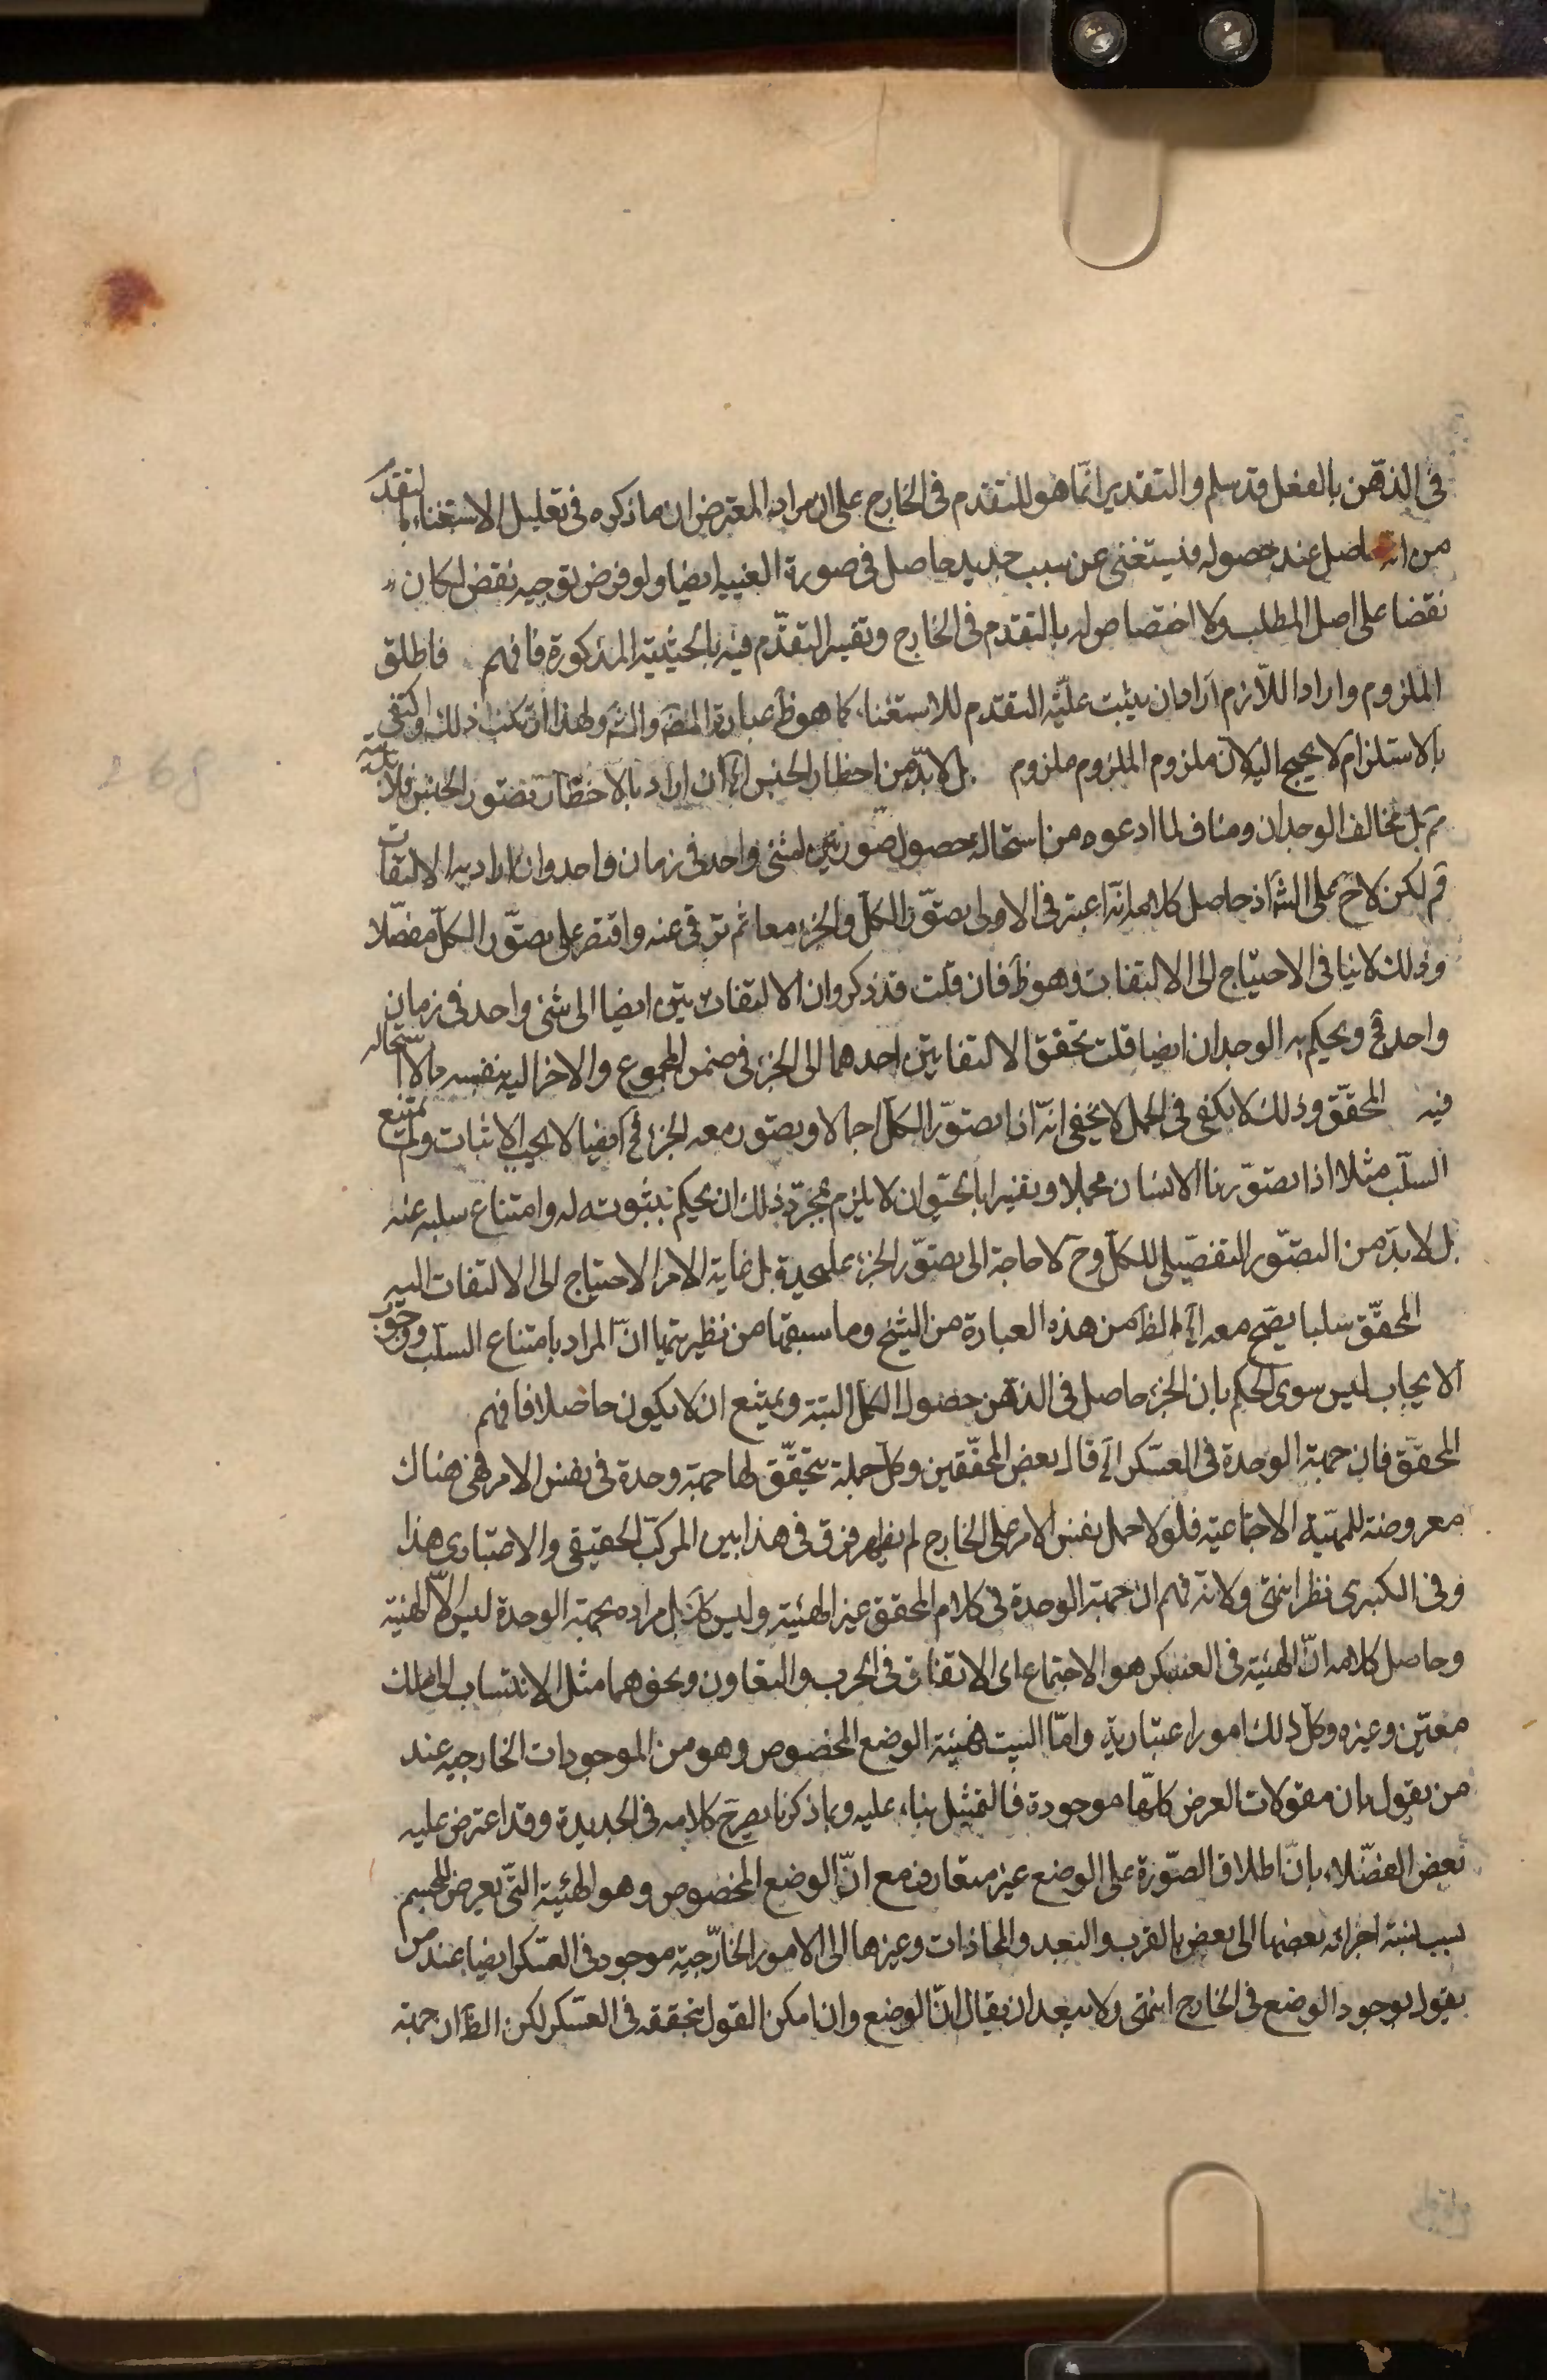 فى الذهن بالفعل قد سلم والتقدير انما هو للتقدم فى الخارج على ان مراد المعترض ان ما ذكره فى تعليل الاستغناء بالتقدم
من انه حاصل عند حصوله فيستغنى عن سبب جديد حاصل فى صورة الغيبة ايضا ولو فرض توجيه نقض لكان
نقضا على اصل المطلب ولا اختصاص له بالتقدم فى الخارج وتقييد التقدم فيه بالحيثية المذكورة فافهم فاطلق
الملزوم واراد اللازم اراد ان يثبت علية التقدم للاستغناء كما هو ظ عبارة المص والش ولهذا ارتكب ذلك ولو اكتفى
بالاستلزام لا يحتج اليه لان ملزوم الملزوم ملزوم بل لا بد من اخطار الجنس الخ ان اراد بالاخطار تصور الجنس ثانيا فلا
ثم بل مخالف الوجدان ومناف لما ادعوه من استحالة حصول صورتين لشئ واحد فى زمان واحد وان اراد به الالتفات
ثم لكن لا ح على الش اذ حاصل كلامه انه اعتبر فى الاولى تصور الكل والجزء معا ثم ترقى عنه واقتصر على تصور الكل مفصلا
وذلك لا ينافى الاحتياج الى الالتفات وهو ظ فان قلت قد ذكروا ان الالتفات يتن ايضا الى شئ واحد فى زمان
واحد مح ويحكم به الوجدان ايضا قلت تحقق الالتفاتين احدهما الى الجزء فى ضمن المجموع والاخر اليه بنفسه مما لا استحالة
فيه المحقق وذلك لا يكفى فى الحمل لا يخفى انه اذا تصور الكل اجمالا وتصور معه الجزء فح ايضا لا يجب الاثبات ولم يمتنع
السلب مثلا اذا تصورنا الانسان مجملا وتصورنا الحيوان لا يلزم بمجرد ذلك ان يحكم بثبوته له وامتناع سلبه عنه
بل لا بد من التصور التفصيلى للكل وح لا حاجة الى تصور الجزء علىحدة بل غاية الامر الاحتياج الى الالتفات اليه
المحقق سلبا يصح معه الخ الظ من هذه العبارة من الشيخ وما سبقها من نظيرتها ان المراد بامتناع السلب ووجوب
الايجاب ليس سوى الحكم بان الجزء حاصل فى الذهن حصول الكل البتة ويمتنع ان لا يكون حاصلا فافهم
المحقق فان جهة الوحدة فى العسكر الخ قال بعض المحققين وكل جملة يتحقق لها جهة وحدة فى نفس الامر فهى هناك
معروضة للهيئة الاجتماعية فلولا حمل نفس الامر على الخارج لم يظهر فرق فى هذا بين المركب الحقيقى والاعتبارى هذا
وفى الكبرى نظر انتهى وكانه فهم ان جهة الوحدة فى كلام المحقق غير الهيئة وليس كك بل مراده بجهة الوحدة ليس الا الهيئة
وحاصل كلامه ان الهيئة فى العسكر هو الاجتماع اى الاتفاق فى الحرب والتعاون ونحوهما مثل الانتساب الى ملك
معين وغيره وكل ذلك امور اعتبارية واما البيت فهيئة الوضع المخصوص وهو من الموجودات الخارجية عند
من يقول بان مقولات العرض كلها موجودة فالتمثيل بناء عليه وبما ذكرنا يصرح كلامه فى الجديدة وقد اعترض عليه
بعض الفضلاء بان اطلاق الصورة على الوضع غير متعارف مع ان الوضع المخصوص وهو الهيئة التى يعرض للجسم
بسبب نسبة اجزائه بعضها الى بعض بالقرب والبعد والمحاذات وغيرها الى الامور الخارجية موجود فى العسكر ايضا عند من
يقول بوجود الوضع فى الخارج انتهى ولا يبعد ان يقال ان الوضع وان امكن القول بتحققه فى العسكر لكن الظ ان جهة